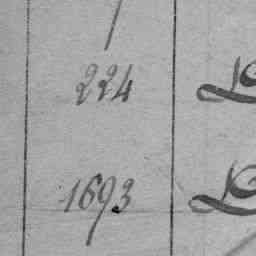 224
1693